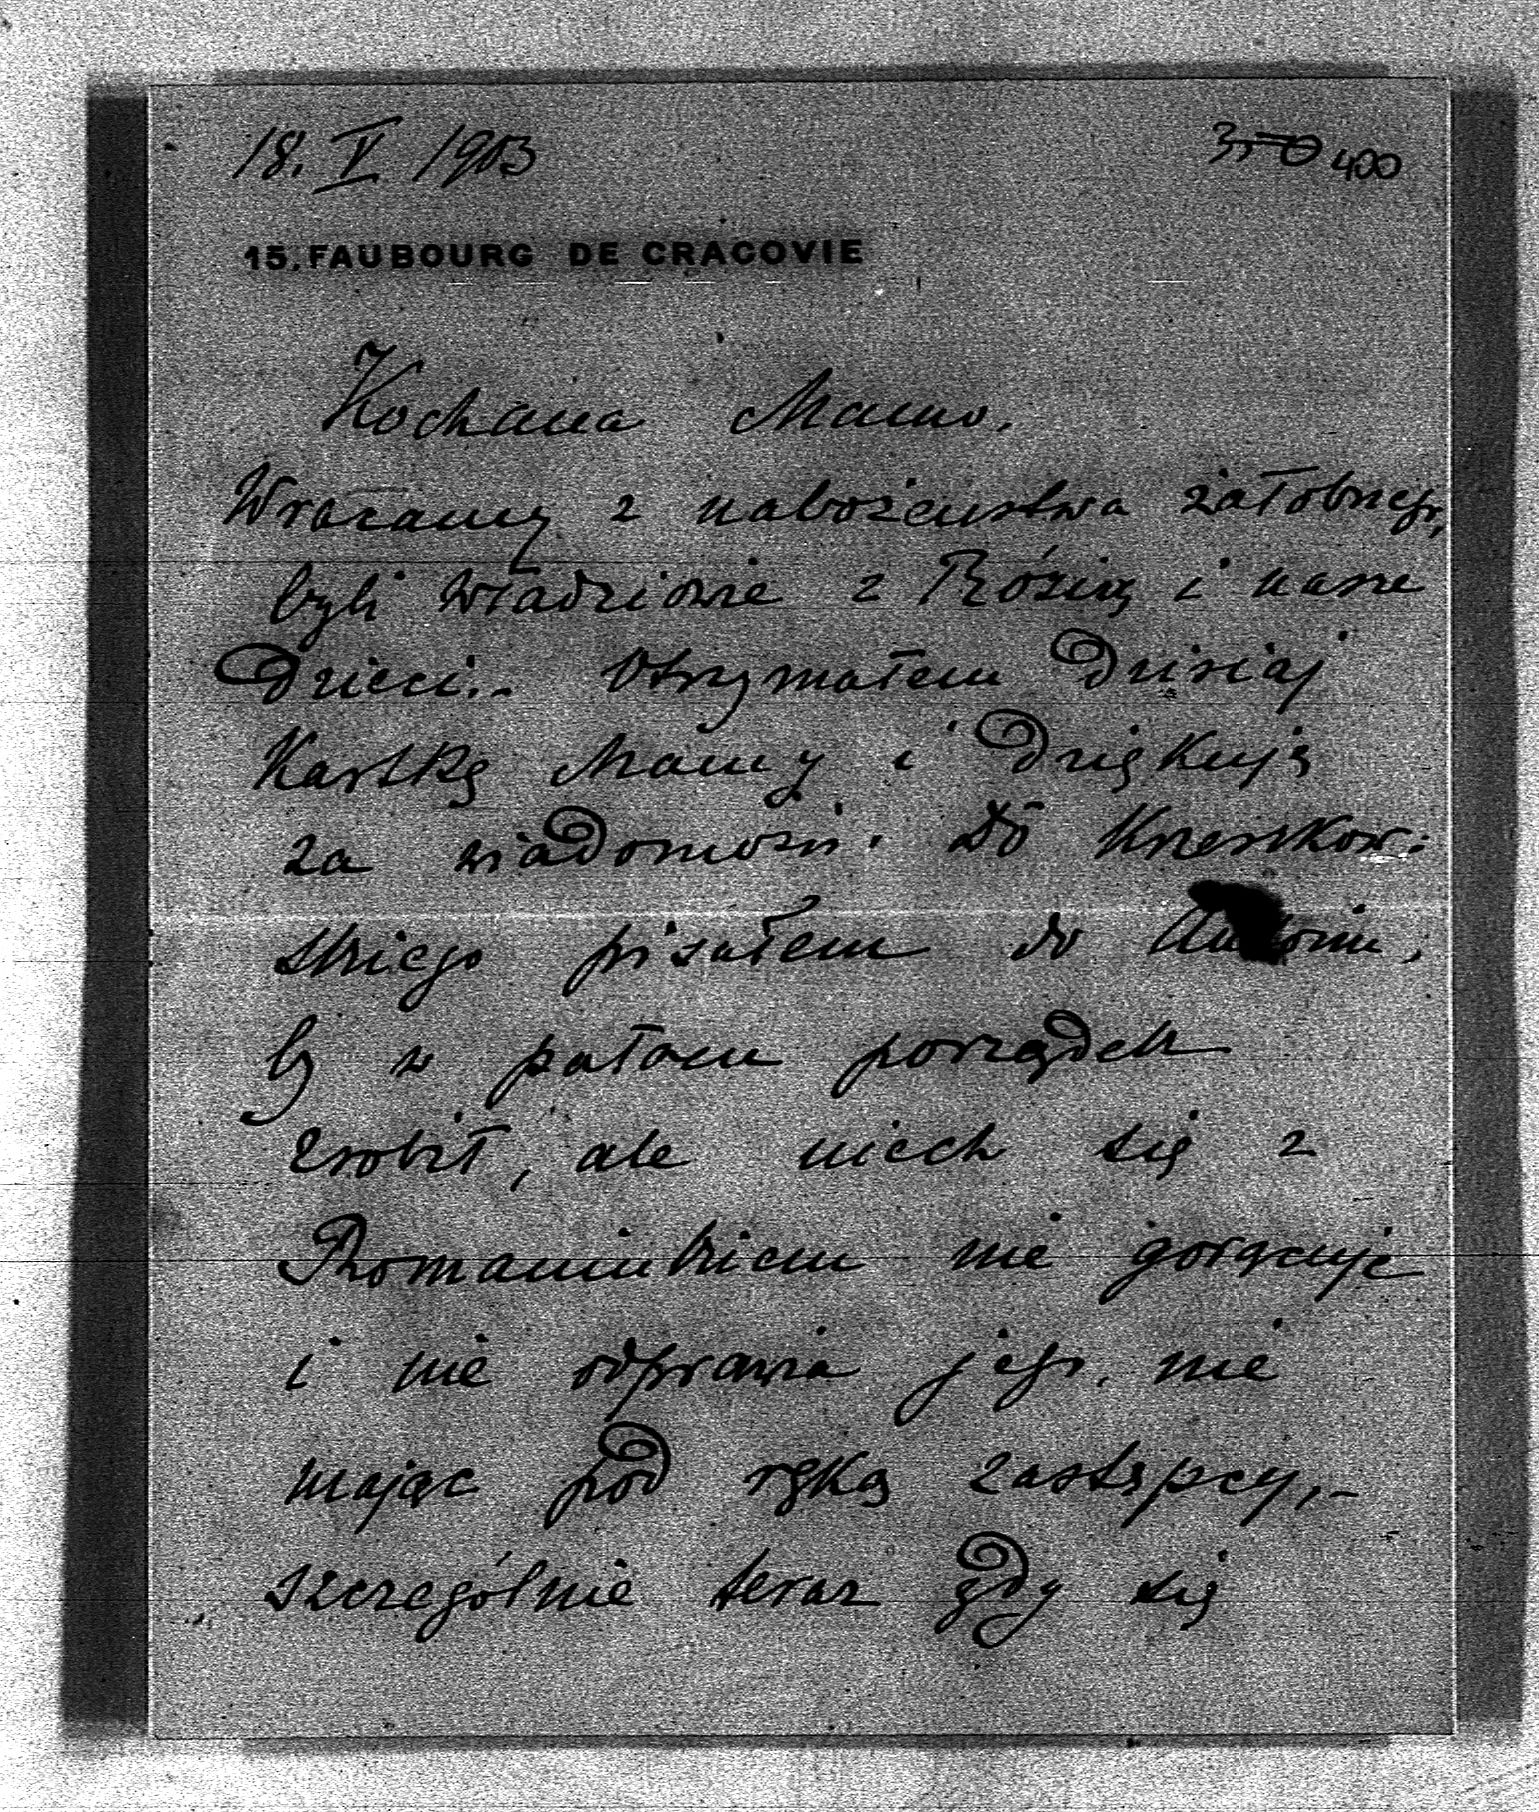 18. V 1903
350 400
15, FAUBOURG DE CRACOVIE
Kochana Mamo,
Wracamy z nabożeństwa żałobnego,
byli Władziowie z Rózią i nasze
Dzieci.- Otrzymałem Dzisiaj
Kartkę Mamy i Dziękuję
za wiadomości. Do
skiego pisałem do Antonin,
by w pałacu porządek
zrobił, ale niech się z
Romaniukiem nie gorącuje
i nie odprawia jego, nie
mając pod ręką zastępcy,-
szczególnie teraz gdy się